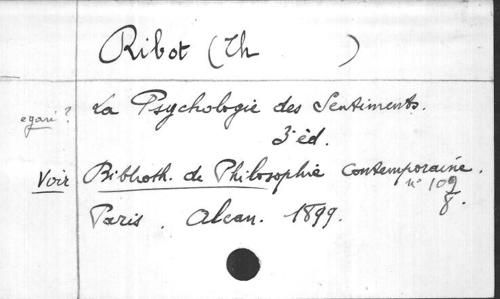 Ribot (Th )
La Psychologie des Sentiments.
egaré ?
3e éd.
Voir Biblioth. de Philosophie Contemporaine.
n° 109
8.
Paris. Alcan. 1899.